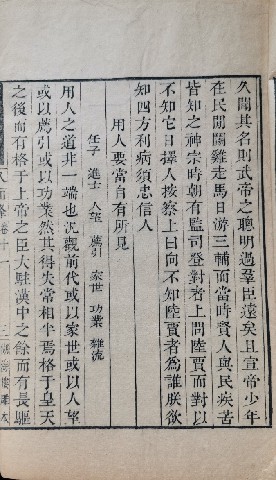 久聞其名則武帝之聰明過羣臣遠矣且宣帝少年
在民間鬬雞走馬日游三輔而當時賢人與民疾苦
皆知之神宗時朝有監司登對者上問陸賈而對以
不知它日擇人按察上曰向不知陸賈者為誰朕欲
知四方利病須忠信人
用人要當自有所見
任子 進士 人望 薦引 家世 功業 雜流
用人之道非一端也沈觀前代或以家世或以人望
或以薦引或以功業然其得失常相半焉格于皇天
之後而有格于上帝之臣大駐漢中之餘而有長驅
卷十一
三